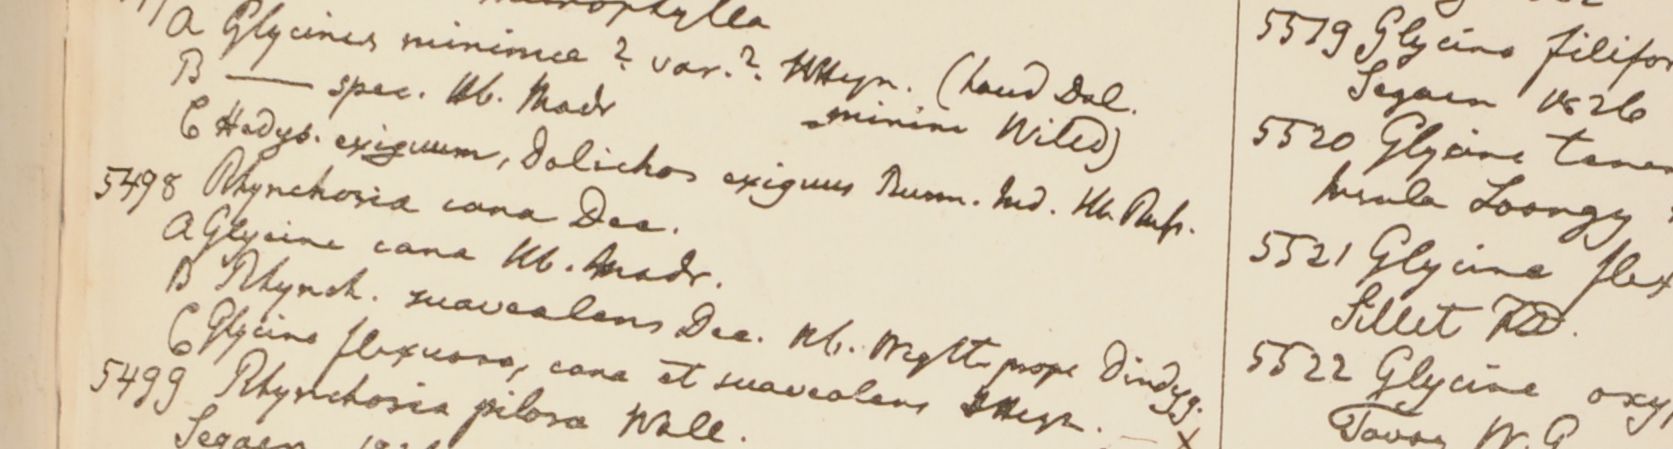 A Glycines minimea ? var.? HHeyn. (haud Dol.
minim Willd)
B —— spec. Hb. Madr
C Hedys. exiguum, Dolichos exiguus Burm. Ind. Hb. Razb.
5498 Rhynchosia cana Dec.
A Glycine cana Hb. Madr.
B Rhynch. suaveolens Dec. Hb. Wight prope Dindyg.
C Glycine flexuosa, cana et suaveolens HHeyn.
5499 Rhynchosia pilosa Wall.
Segaen
5519 Glycine filifor
Segaen 1826
5520 Glycine
Insula Loongy
5521 Glycine flex
Sillet
5522 Glycine oxy
Tavoy W.G